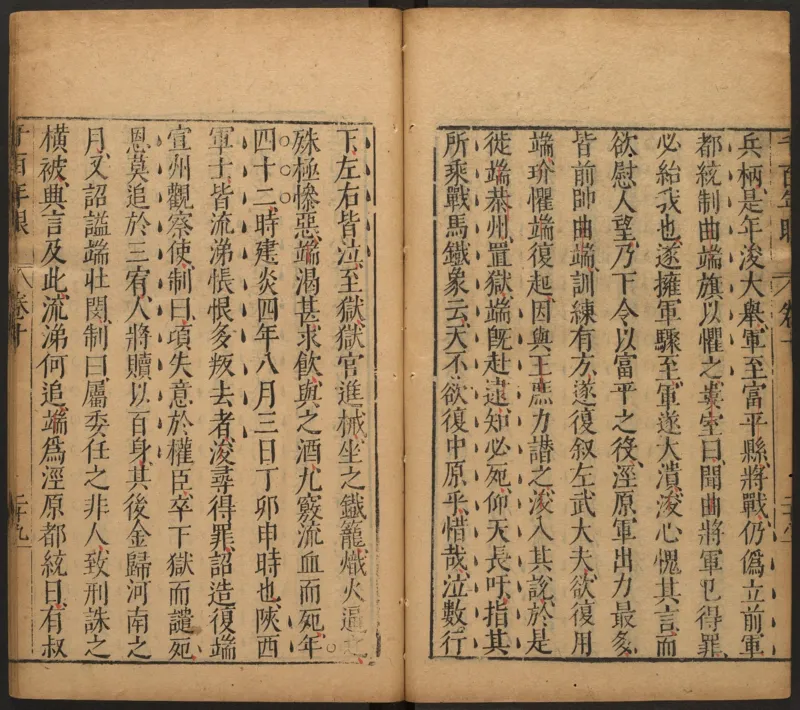 兵柄是年浚大舉軍至富平縣將戰仍僞立前軍
都統制曲端旗以懼之婁室曰聞曲將軍已得罪
必紿我也遂擁軍驟至軍遂大潰浚心愧其言而
欲慰人望乃下令以富平之役涇原軍出力最多
皆前帥曲端訓練有方遂復叙左武大夫欲復用
端玠懼端復起因與王庶力譖之浚入其説於是
徙端恭州置獄端既赴逮知必死仰天長吁指其
所乘戰馬鐵象云天不欲復中原乎惜哉泣數行
下左右皆泣至獄獄官進械坐之鐵籠熾火逼之
殊極慘惡端渴甚求飲與之酒九竅流血而死年
四十二時建炎四年八月三日丁卯申時也陝西
軍士皆流涕悵恨多叛去者浚尋得罪詔造復端
宣州觀察使制曰頃失意於權臣卒下獄而譴死
恩莫追於三宥人將贖以百身其後金歸河南之
月又詔謚端壯閔制曰屬委任之非人致刑誅之
橫被典言及此流涕何追端爲涇原都統日有叔
千百年眼 卷十 二十九